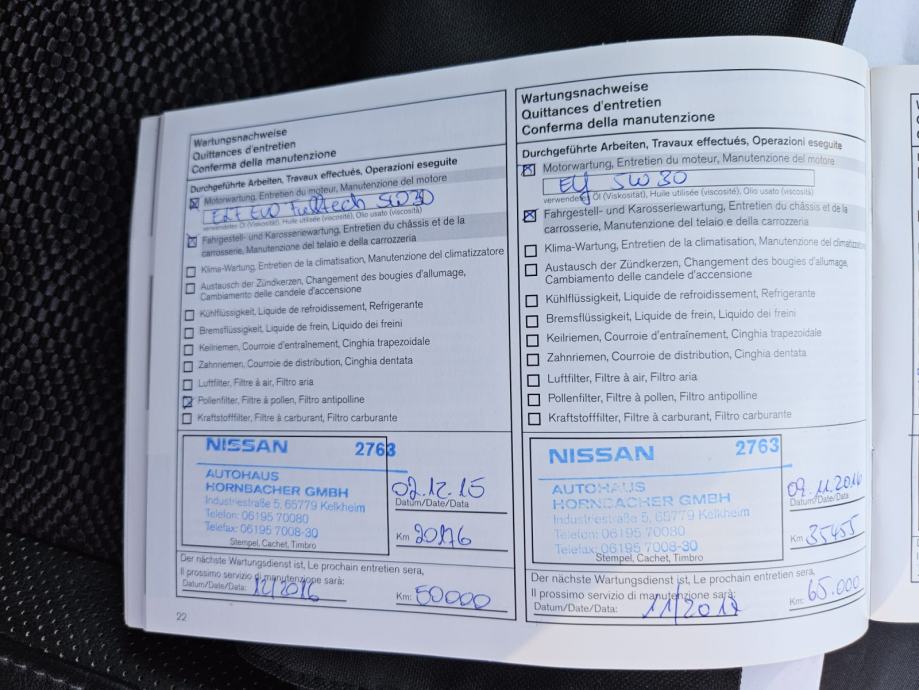 Wartungsnachweise
Quittances d'entretien
Conferma della manutenzione
Durchgeführte Arbeiten, Travaux effectués, Operazioni eseguite
Motorwartung, Entretien du moteur, Manutenzione del motore
Elf Evo Fulltech 5W30
verwendetes Öl (Viskosität), Huile utilisée (viscosité), Olio usato (viscosità)
Fahrgestell- und Karosseriewartung, Entretien du châssis et de la
carrosserie, Manutenzione del telaio e della carrozzeria
Klima-Wartung, Entretien de la climatisation, Manutenzione del climatizzatore
Austausch der Zündkerzen, Changement des bougies d'allumage,
Cambiamento delle candele d'accensione
Kühlflüssigkeit, Liquide de refroidissement, Refrigerante
Bremsflüssigkeit, Liquide de frein, Liquido dei freini
Keilriemen, Courroie d'entraînement, Cinghia trapezoidale
Zahnriemen, Courroie de distribution, Cinghia dentata
Luftfilter, Filtre à air, Filtro aria
Pollenfilter, Filtre à pollen, Filtro antipolline
Kraftstofffilter, Filtre à carburant, Filtro carburante
NISSAN 2763
AUTOHAUS
HORNBACHER GMBH
Industriestraße 5, 65779 Kelkheim
Telefon: 06195 70080
Telefax: 06195 7008-30
Stempel, Cachet, Timbro
02.12.15
Datum/Date/Data
Km 20176
Der nächste Wartungsdienst ist, Le prochain entretien sera,
Il prossimo servizio di manutenzione sarà:
Datum/Date/Data: 12/2016
Km: 50000
22
Wartungsnachweise
Quittances d'entretien
Conferma della manutenzione
Durchgeführte Arbeiten, Travaux effectués, Operazioni eseguite
Motorwartung, Entretien du moteur, Manutenzione del motore
Elf 5W30
verwendetes Öl (Viskosität), Huile utilisée (viscosité), Olio usato (viscosità)
Fahrgestell- und Karosseriewartung, Entretien du châssis et de la
carrosserie, Manutenzione del telaio e della carrozzeria
Klima-Wartung, Entretien de la climatisation, Manutenzione del climatizzatore
Austausch der Zündkerzen, Changement des bougies d'allumage,
Cambiamento delle candele d'accensione
Kühlflüssigkeit, Liquide de refroidissement, Refrigerante
Bremsflüssigkeit, Liquide de frein, Liquido dei freini
Keilriemen, Courroie d'entraînement, Cinghia trapezoidale
Zahnriemen, Courroie de distribution, Cinghia dentata
Luftfilter, Filtre à air, Filtro aria
Pollenfilter, Filtre à pollen, Filtro antipolline
Kraftstofffilter, Filtre à carburant, Filtro carburante
NISSAN 2763
AUTOHAUS
HORNBACHER GMBH
Industriestraße 5, 65779 Kelkheim
Telefon: 06195 70080
Telefax 06195 7008-30
Stempel, Cachet, Timbro
09.11.2016
Datum/Date/Data
Km 35455
Der nächste Wartungsdienst ist, Le prochain entretien sera,
Il prossimo servizio di manutenzione sarà:
Datum/Date/Data:
Km: 65.000